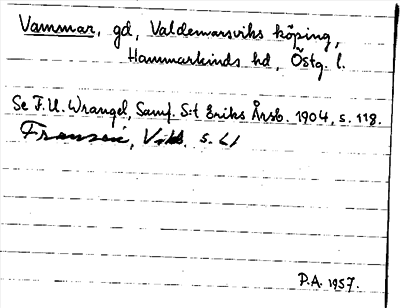 Vammar, gd, Valdemarsviks köping,
Hammarkinds hd, Östg. l.
Se F.U. Wrangel, Samf. S:t Eriks Årsb. 1904, s. 118.
s. 61
P.A. 1957.